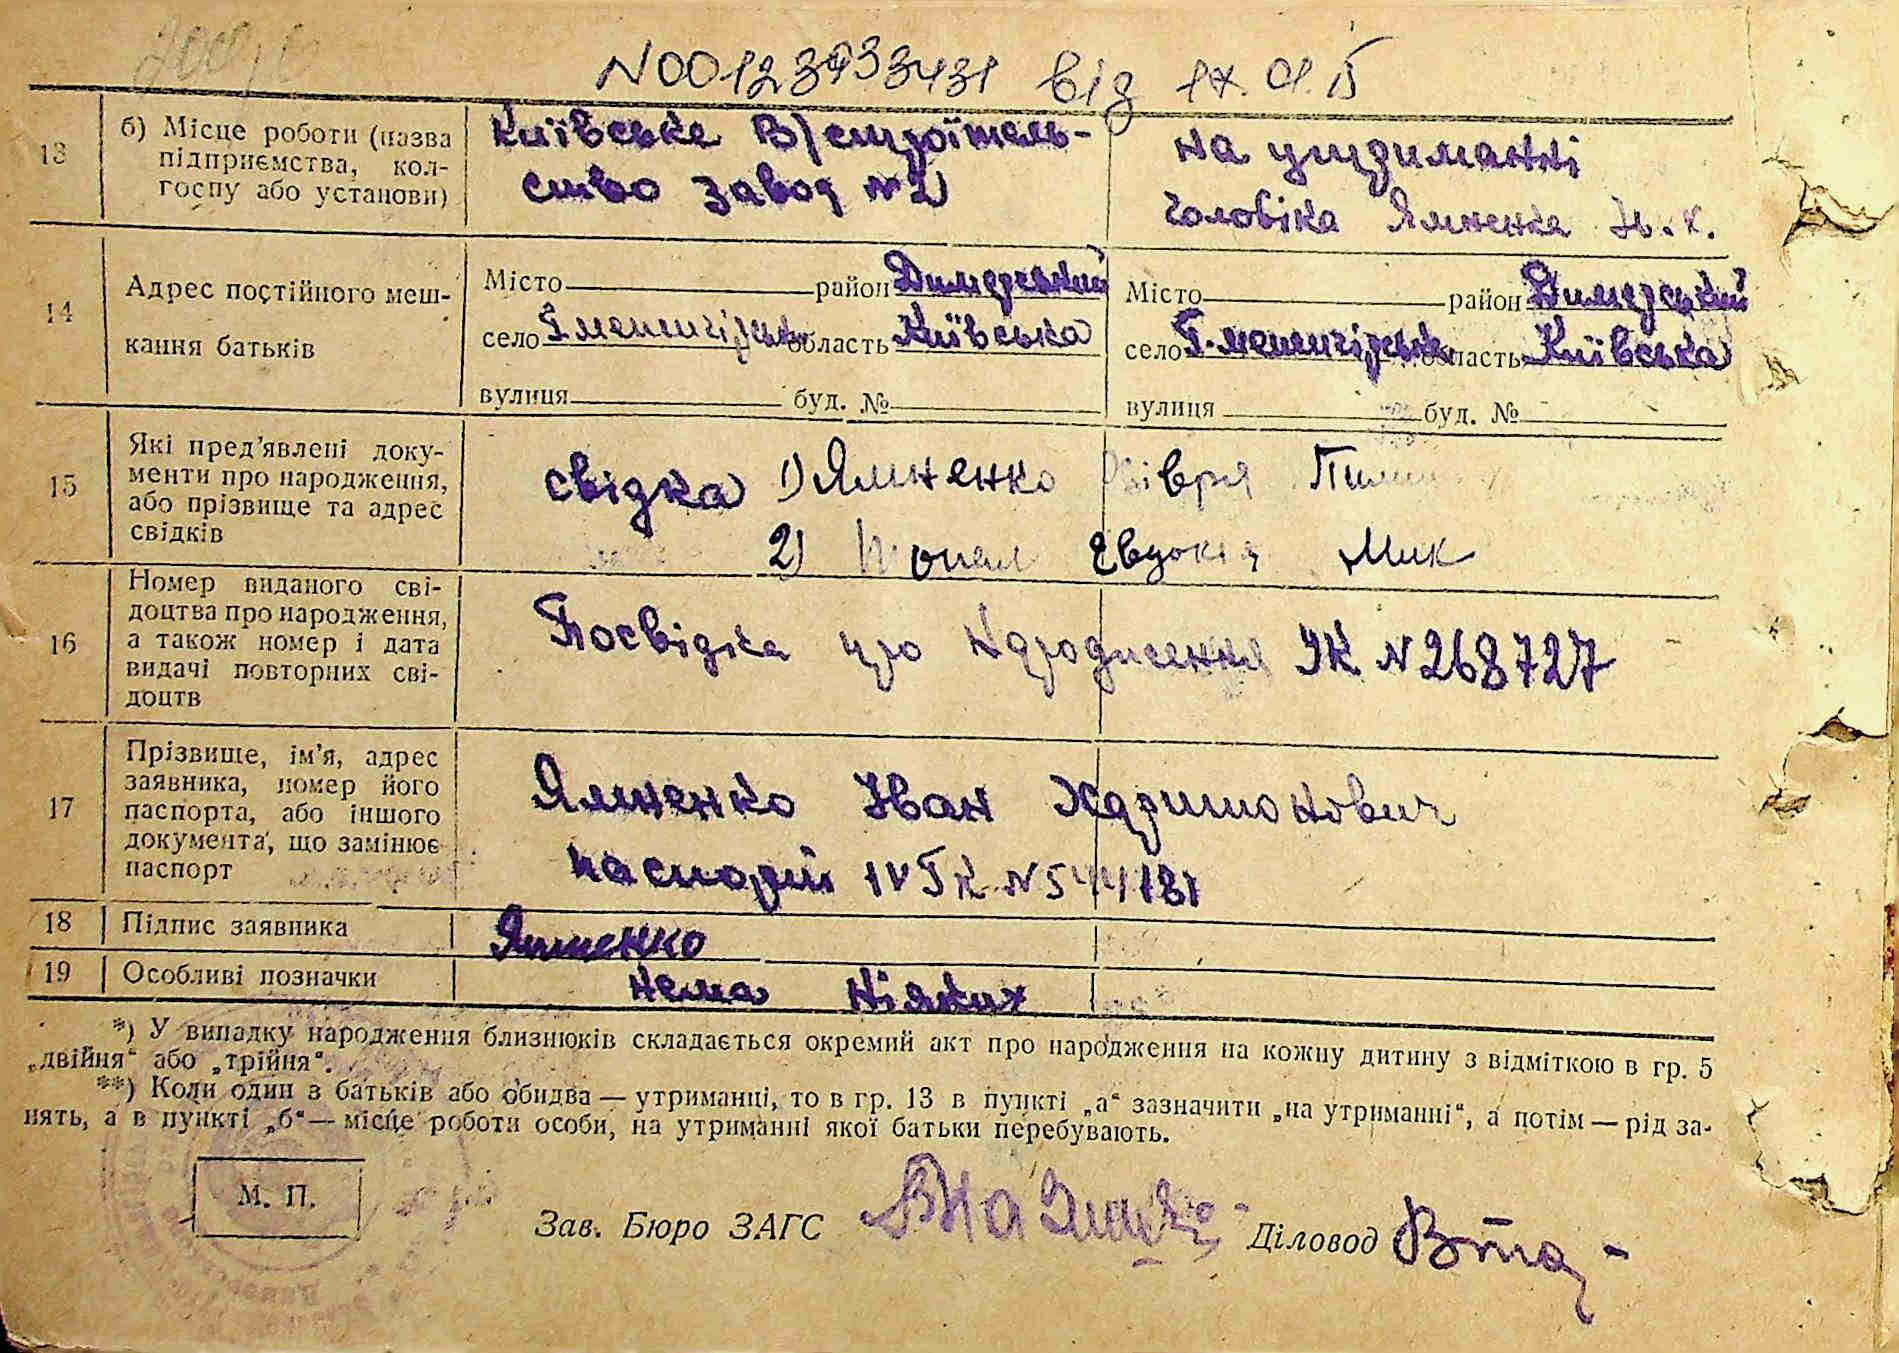 від
13
б) Місце роботи (назва
підприємства, кол-
госпу або установи)
Київське В/строїтель-
ство завод №2
на утриманні
чоловіка Ялиненка Ів. Х.
14
Адрес постійного меш-
кання батьків
Місто район Димерський
село область Київська
вулиця буд. №
Місто район Димерський
село область Київська
вулиця буд. №
15
Які пред'явлені доку-
менти про народження,
або прізвище та адрес
свідків
свідка 1) Ялиненко
2) Евдокія Мик
16
Номер виданого сві-
доцтва про народження,
а також номер і дата
видачі повторних сві-
доцтв
Посвідка про народження УК №268727
17
Прізвище, ім'я, адрес
заявника, номер його
паспорта, або іншого
документа, що замінює
паспорт
Ялиненко Іван Харитонович
паспорт IV ГК №544181
18
Підпис заявника
Ялиненко
19
Особливі позначки
нема ніяких
*) У випадку народження близнюків складається окремий акт про народження на кожну дитину з відміткою в гр. 5
„двійня“ або „трійня“.
**) Коли один з батьків або обидва — утриманці, то в гр. 13 в пункті „а“ зазначити „на утриманні“, а потім — рід за-
нять, а в пункті „б“ — місце роботи особи, на утриманні якої батьки перебувають.
М. П.
Зав. Бюро ЗАГС
Діловод